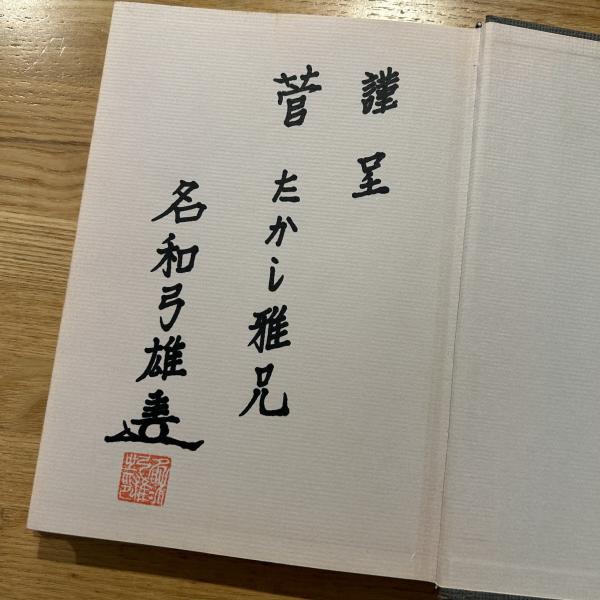 謹呈
菅たかし雅兄
名和弓雄